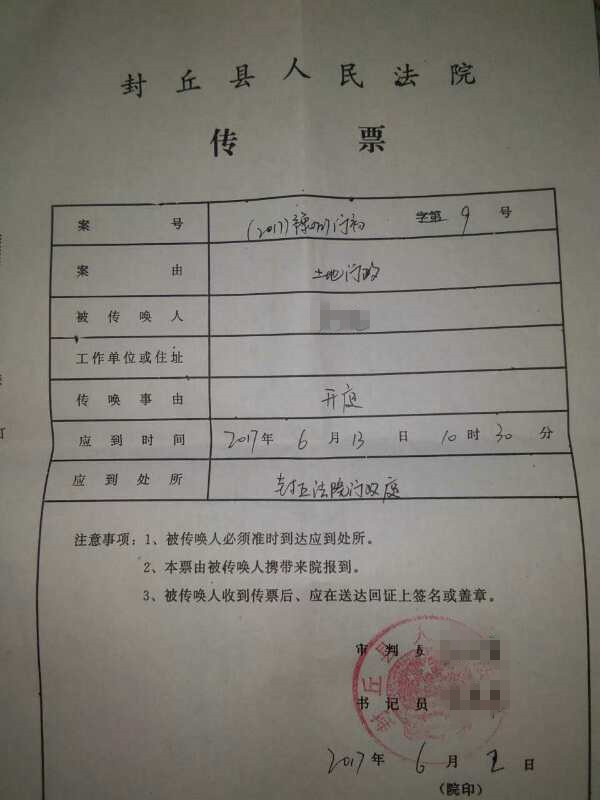 封丘县人民法院
传 票
案 号 (2017) 字第 9 号
案 由 土地行政
被传唤人
工作单位或住址
传唤事由 开庭
应到时间 2017年 6 月 13 日 10 时 30 分
应到处所 封丘法院行政庭
注意事项：1、被传唤人必须准时到达应到处所。
2、本票由被传唤人携带来院报到。
3、被传唤人收到传票后、应在送达回证上签名或盖章。
审 判 员
书 记 员
封丘县人
2017 年 6 月 2 日
(院印)